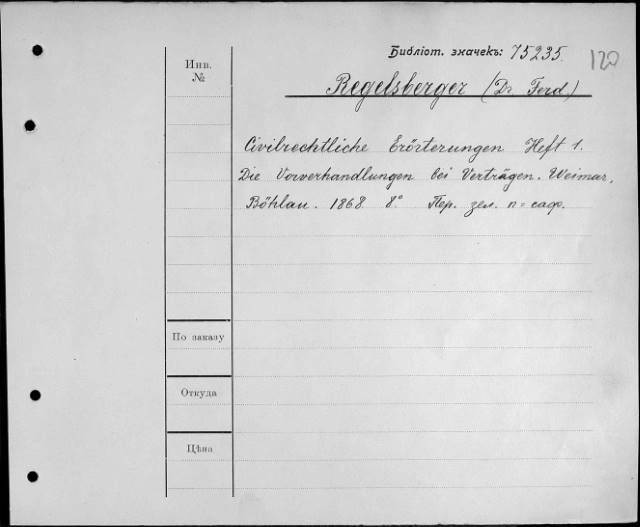 Библіот. значекъ: 75235.
120
Инв.
№
Regelsberger (Dr Ferd)
Civilrechtliche Erörterungen Heft 1.
Die Vorverhandlungen bei Verträgen. Weimar,
Böhlau. 1868 8° Пер. зел. п=саф.
По заказу
Откуда
Цѣна